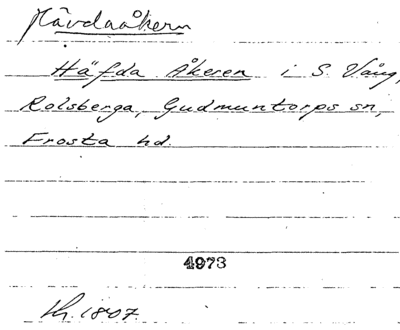 Hävdaåkern
Häfda Åkeren i S. Vång,
Rolsberga, Gudmuntorps sn,
Frosta hd.
4973
1807